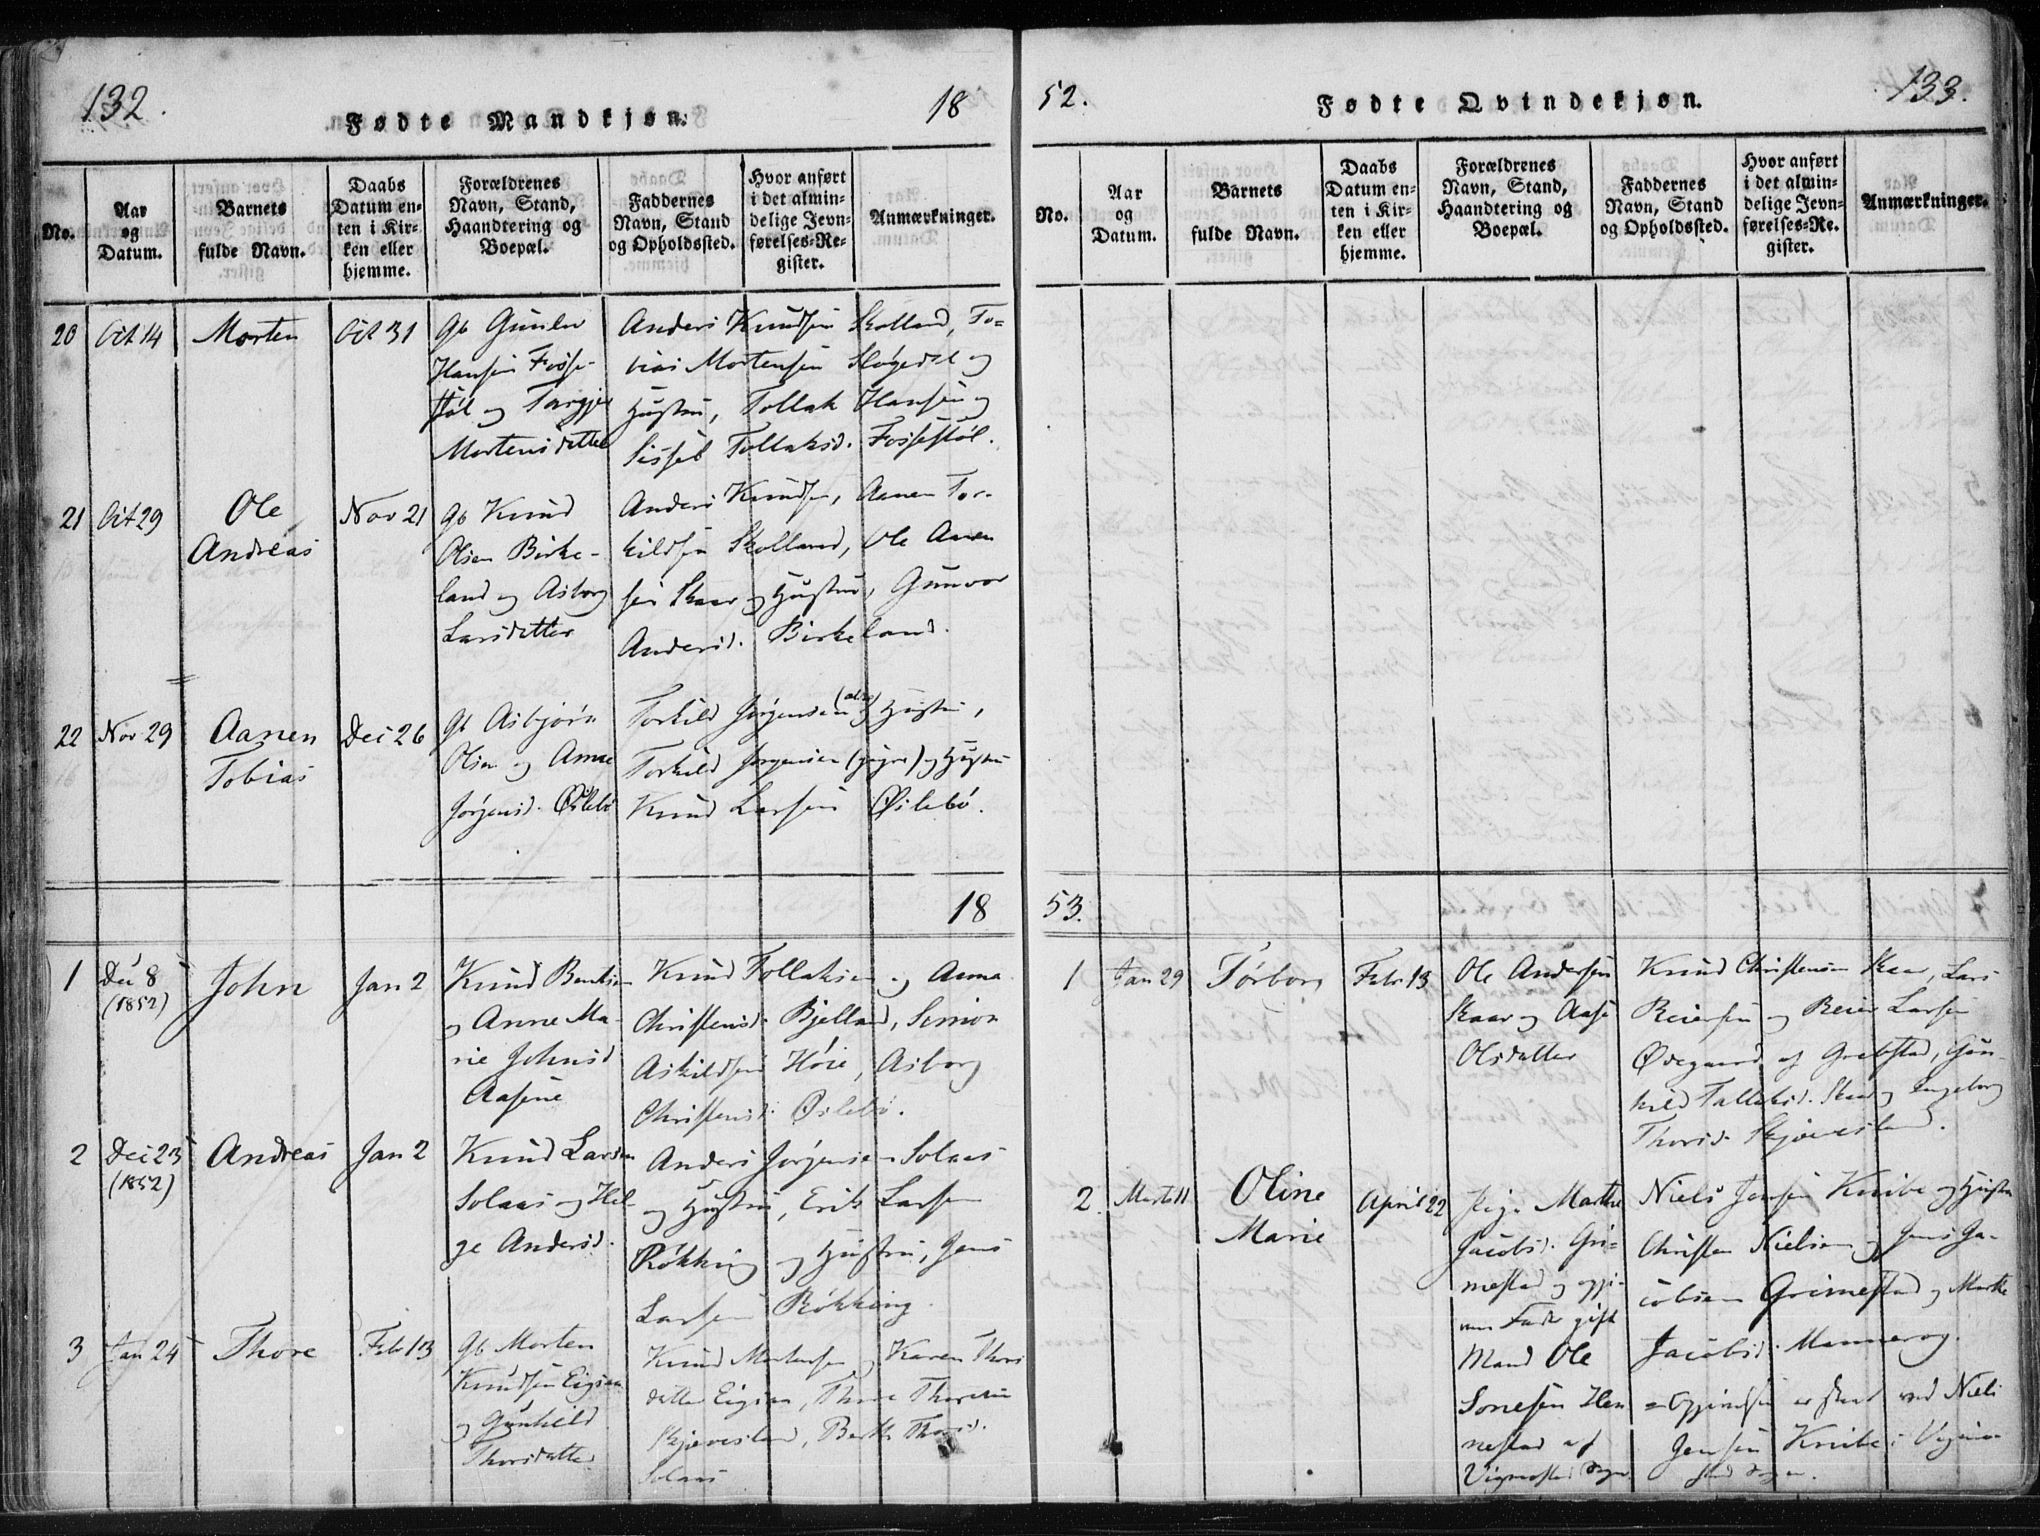 132.
Fødte Mandkjøn.
18
No.
Aar
og
Datum.
Barnets
fulde Navn.
Daabs
Datum en-
ten i Kir-
ken eller
hjemme.
Forældrenes
Navn, Stand,
Haandtering og
Boepæl.
Faddernes
Navn, Stand
og Opholdssted.
Hvor anført
i det almin-
delige Jevn-
førelses-Re-
gister.
Anmærkninger.
20
Oct 14
Morten
Oct 31
Gb Gunler
Hansen Fosse-
støl og Targjer
Mortensdatter
Anders Knudsen Skolland, To-
bias Mortensen Sløgedal og
Hustru, Tollak Hansen og
Sissel Tollaksd. Fossestøl.
21
Oct 29
Ole
Andreas
Nov 21
Gb Knud
Olsen Birke-
land og Asborg
Larsdatter
Anders Knudsen, Aanen Tor-
kildsen Skolland, Ole Aanen
sen Skaar og Hustru, Gunvor
Andersd. Birkeland.
22
Nov 29
Aanen
Tobias
Dec 26
Gb Asbjørn
Olsen og Anne
Jørgensd. Øslebø
Torkild Jørgensen og Hustru,
Torkild Jørgensen (yngre) og Hustru
Knud Larsen Øslebø.
18
1
Dec 8
(1852)
John
Jan 2
Knud Bentsen
og Anne Ma-
rie Johnsd
Aasene
Knud Tollaksen og Anna
Christensd. Bjelland, Simon
Askildsen Høie, Asborg
Christensd. Øslebø.
2
Dec 23
(1852)
Andreas
Jan 2
Knud Larsen
Solaas og Hel-
ge Andersd.
Anders Jørgensen Solaas
og Hustru, Erik Larsen
Røkking og Hustru, Jens
Larsen Røkking.
3
Jan 24
Thore
Febr 13
Gb Morten
Knudsen Eigen
og Gunhild
Thorsdatter
Knud Mortensen og Karen Thors
datter, Thore Thoresen
Skjævesland, Berthe Thorsd.
Solaas
52.
Fødte Qvindekjøn.
133.
No.
Aar
og
Datum.
Barnets
fulde Navn.
Daabs
Datum en-
ten i Kir-
ken eller
hjemme.
Forældrenes
Navn, Stand,
Haandtering og
Boepæl.
Faddernes
Navn, Stand
og Opholdssted.
Hvor anført
i det almin-
delige Jevn-
førelses-Re-
gister.
Anmærkninger.
53.
1
Jan 29
Tørbor
Febr 13
Ole Andersen
Skaar og Aase
Olsdatter
Knud Christensen Skaar, Lars
Reiersen og Reier Larsen
Ødegaard af Grebstad, Gun-
hild Tallaksd. Skaar og Ingeborg
Thorsd. Skjævesland.
2.
Marts 11
Oline
Marie
April 22
Pige Marthe
Jacobsd. Gri-
mestad og
Fader gift
Mand Ole
Sonesen Hen
nestad af
Vigmostad Sogn
Niels Jensen Knibe og Hustru
Christen Nielsen og Jens Ja-
cobsen Grimestad og Marthe
Jacobsd. Mannerog.
er skeet ved Niels
Jensen Knibe i Vigmo-
stad Sogn.